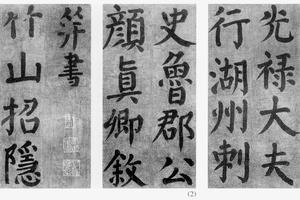 光禄大夫
行湖州刺
史魯郡公
顏眞卿敘
并書
竹山招隱
(2)